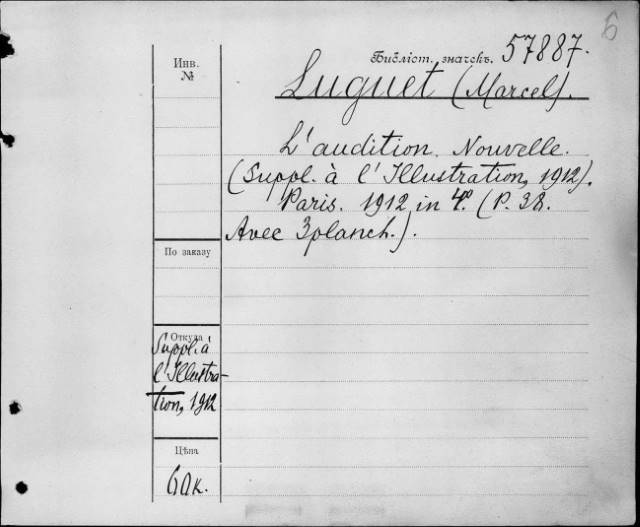 6
Инв.
№
Библіот. значекъ. 57887.
Luguet (Marcel).
L'audition. Nouvelle.
(Suppl. à l'Illustration, 1912).
Paris. 1912 in 4º. (P. 38.
Avec 3 planch.).
По заказу
Откуда
Suppl. à
l'Illustra-
tion, 1912
Цѣна
60к.